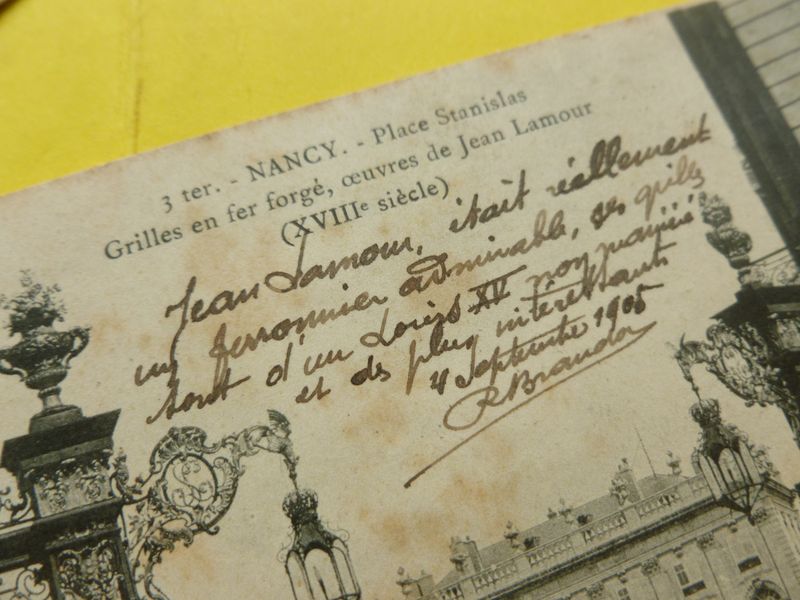 3 ter. - NANCY. - Place Stanislas
Grilles en fer forgé, œuvres de Jean Lamour
(XVIIIe siècle)
Jean Lamour, était réellement
un ferronnier admirable, ses grilles
sont d'un Louis XV non maniéré
et des plus intéressants
4 Septembre 1905